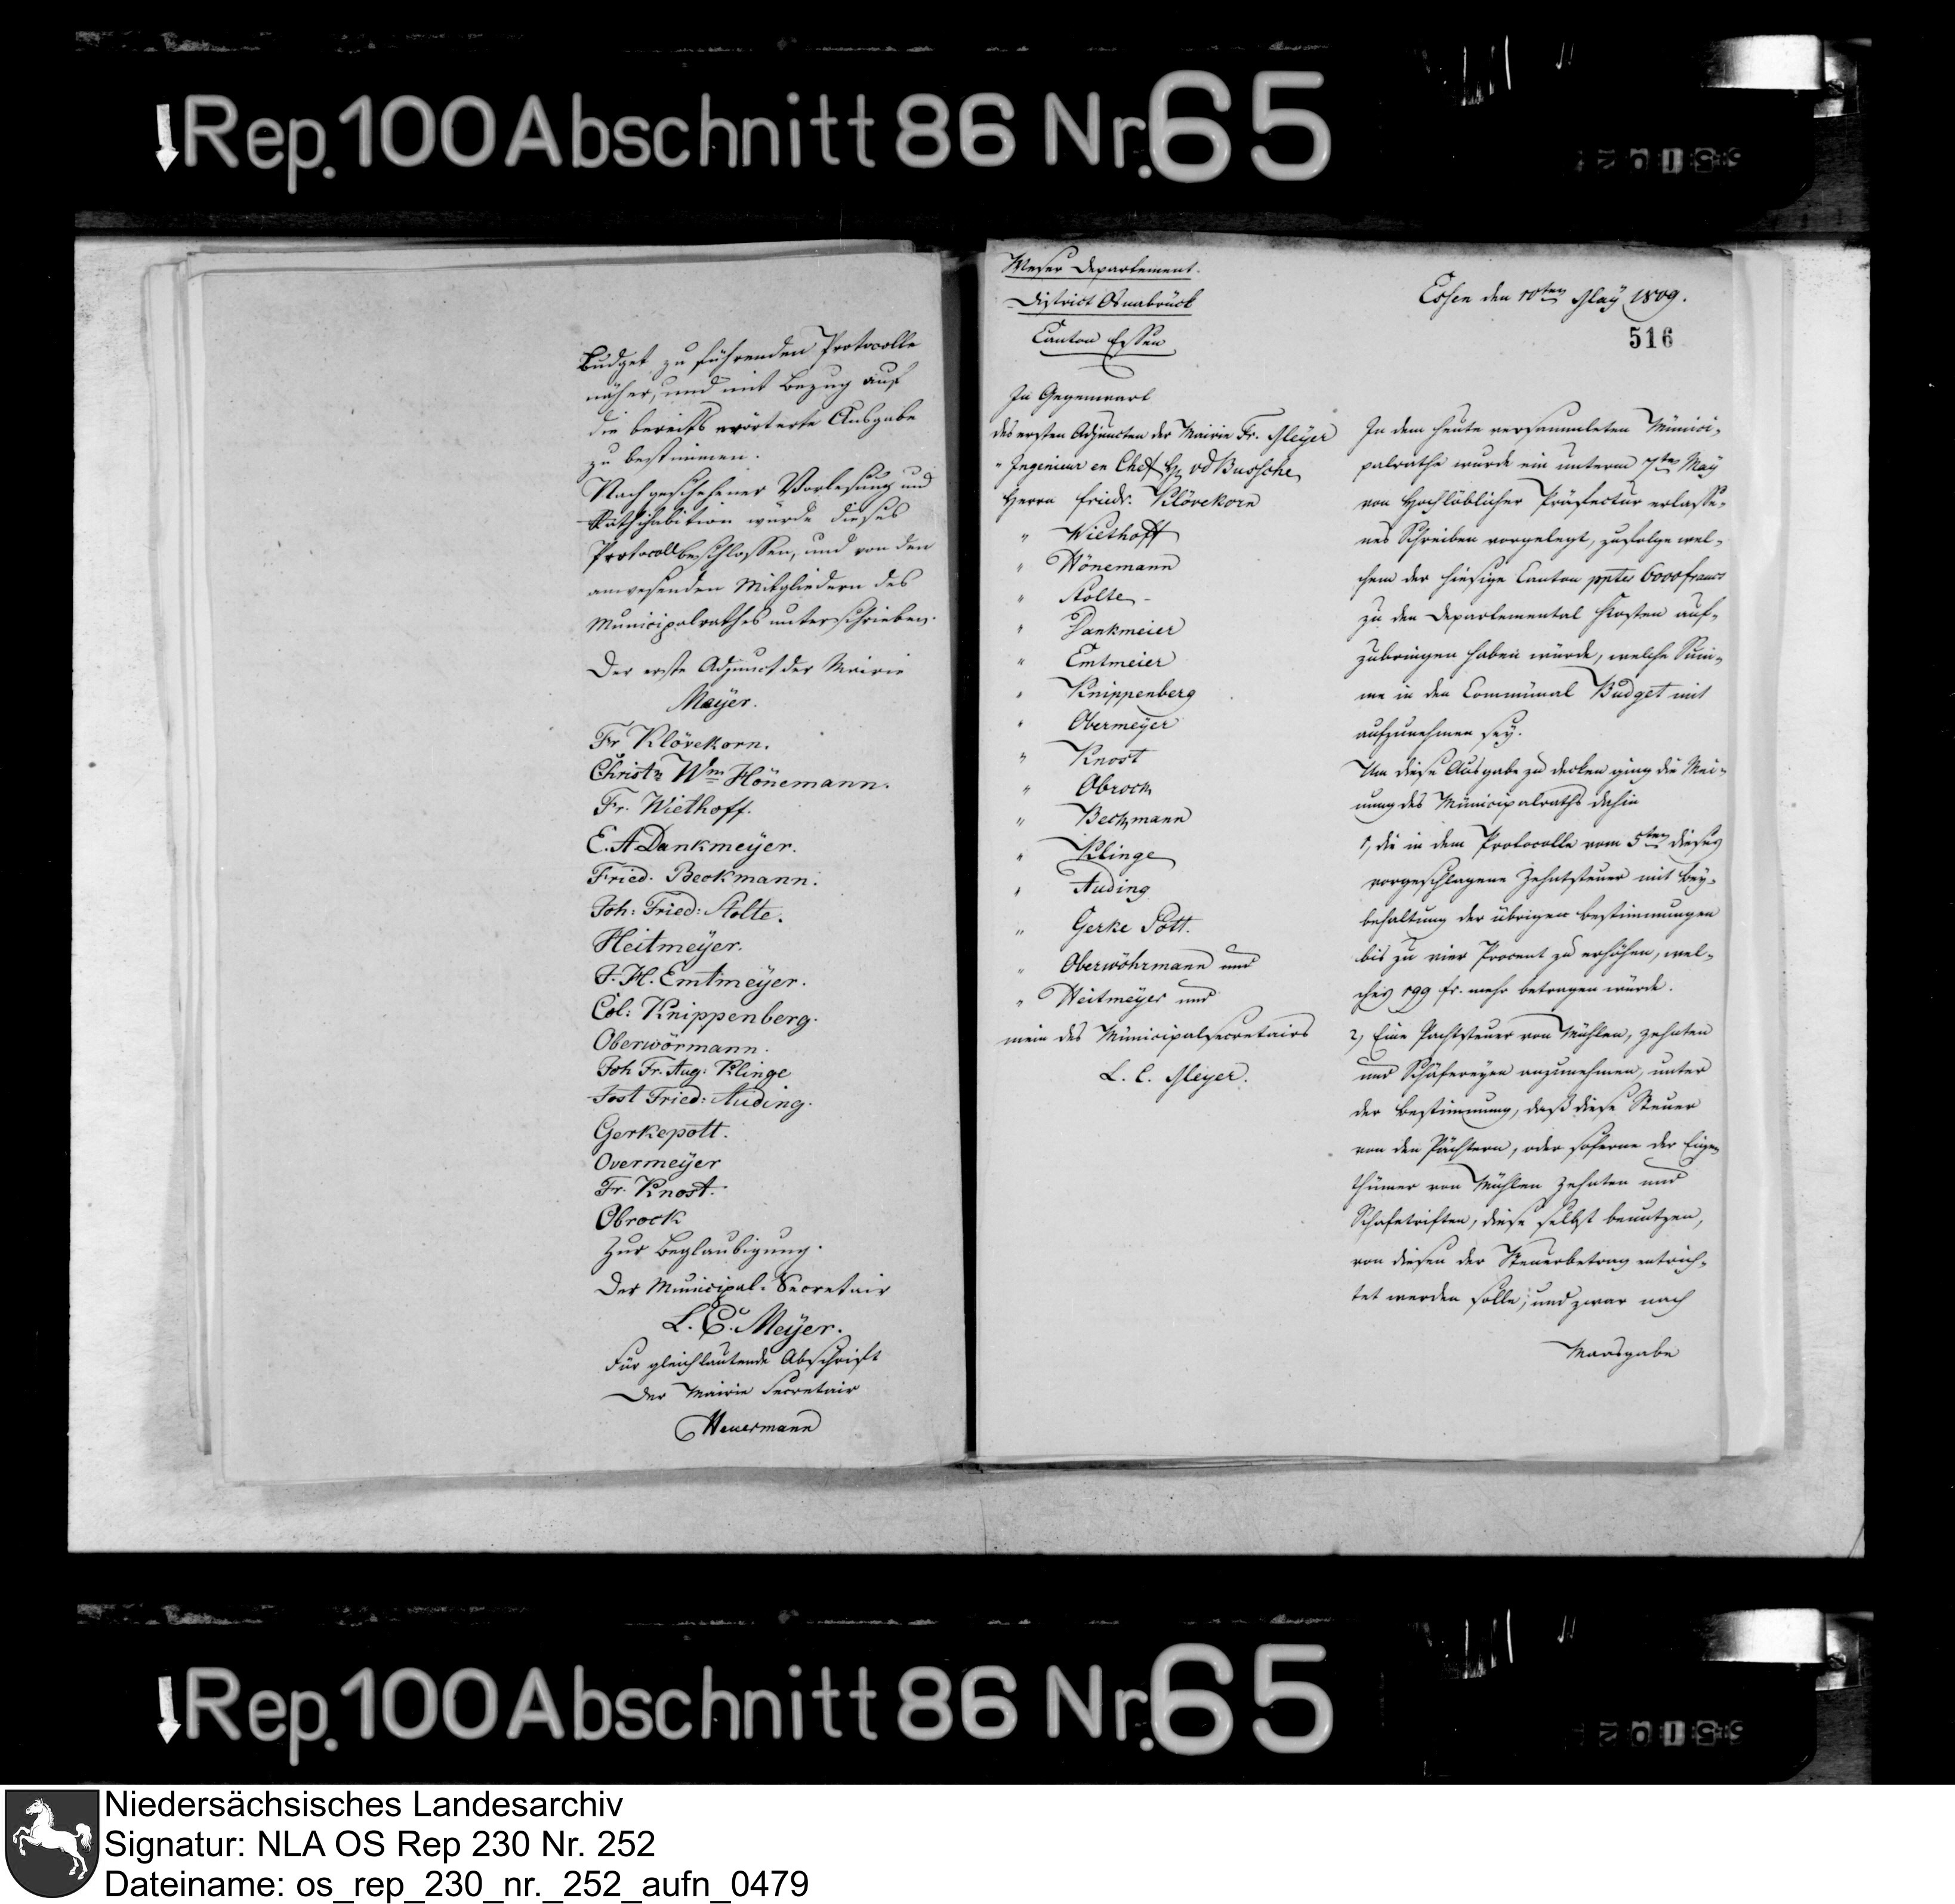 Rep. 100 Abschnitt 86 Nr. 65
Budget zu führenden Protocolle
näher, und mit Bezug auf
die bereits erörterte Ausgabe
zu bestimmen.
Nach geschehener Vorlesung und
Rathihabition wurde dieses
Protocoll beschlossen, und von den
anwesenden Mitgliedern des
Municipalrathes unterschrieben.
Der erste Adjunct der Mairie
Mayer.
Fr Klövekorn.
Christn Wm Hönemann.
Fr. Wiethoff.
E. A Dankmeÿer.
Fried. Beckmann.
Joh: Fried: Stolte.
Heitmeÿer.
F. H. Emtmeÿer.
Col: Knippenberg.
Oberwörmann.
Joh Fr. Aug: Klinge
Jost Fried: Auding.
Gerkepott.
Overmeÿer
Fr. Knost.
Obrock
Zur Beglaubigung.
Der Municipal-Secretair
L. C. Meÿer.
Für gleichlautende Abschrift
Der Mairie Secretair
Heuermann
Weser Departement.
District Osnabrück
Canton Essen
Essen den 10ten Maÿ 1809.
516
In Gegenwart
des ersten Adjuncten der Mairie Fr. Meÿer
" Ingenieur en Chef H. v d Bussche
Herrn Friedr. Klövekorn
" Wiethoff
" Hönemann
" Stolte
" Dankmeier
" Emtmeier
" Knippenberg
" Obermeÿer
" Knost
" Obrock
" Beckmann
" Klinge
" Auding
" Gerke Pott.
" Oberwöhrmann und
" Heitmeÿer und
mein des Municipalsecretairs
L. C. Meÿer.
In dem heute versammleten Munici-
palrathe wurde ein unterm 7ten May
von Hochlöblicher Präfectur erlasse-
nes Schreiben vorgelegt, zufolge wel-
chem der hiesige Canton ppter 6000 francs
zu den Departemental Kosten auf-
zubringen haben würde, welche Sum-
me in den Communal Budget mit
aufzunehmen seÿ.
Um diese Ausgabe zu decken ging die Mei-
nung des Municipalraths dahin
1, die in dem Protocolle vom 5ten dieses
vorgeschlagene Zehntsteuer mit Beÿ-
behaltung der übrigen Bestimmungen
bis zu vier Procent zu erhöhen, wel-
ches 199 fr. mehr betragen würde.
2, Eine Pachtsteuer von Mühlen, Zehnten
und Schäfereyen anzunehmen, unter
der Bestimmung, daß diese Steuer
von den Pächtern, oder soferne der Eigen
thümer von Mühlen Zehnten und
Schafetriften, diese selbst benutzen,
von diesen der Steuerbetrag entrich-
tet werden solle; und zwar nach
Maasgabe
Rep. 100 Abschnitt 86 Nr. 65
Niedersächsisches Landesarchiv
Signatur: NLA OS Rep 230 Nr. 252
Dateiname: os_rep_230_nr._252_aufn_0479